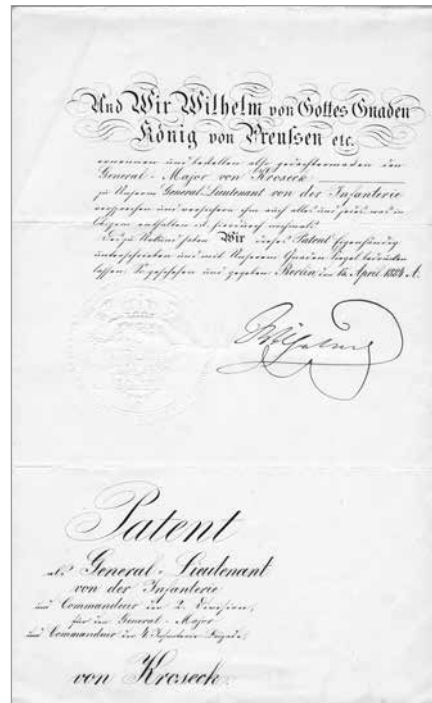 Und Wir Wilhelm von Gottes Gnaden
König von Preussen etc.
ernennen und bestellen also gedachtermaßen den
General-Major von Kroseck
zu Unserm General-Lieutenant von der Infanterie
versprechen und versichern ihm auch alles und jedes was in
enthalten ist hierdurch nochmals.
Deß zu Urkund haben Wir dieses Patent Eigenhändig
unterschrieben und mit Unserem Gnaden Siegel bedrucken
lassen. So geschehen und gegeben Berlin den April 1884
Wilhelm
Patent
als General-Lieutenant
von der Infanterie
und Commandeur der 2. Division,
für den General-Major
und Commandeur der 4. Infanterie Brigade,
von Kroseck.